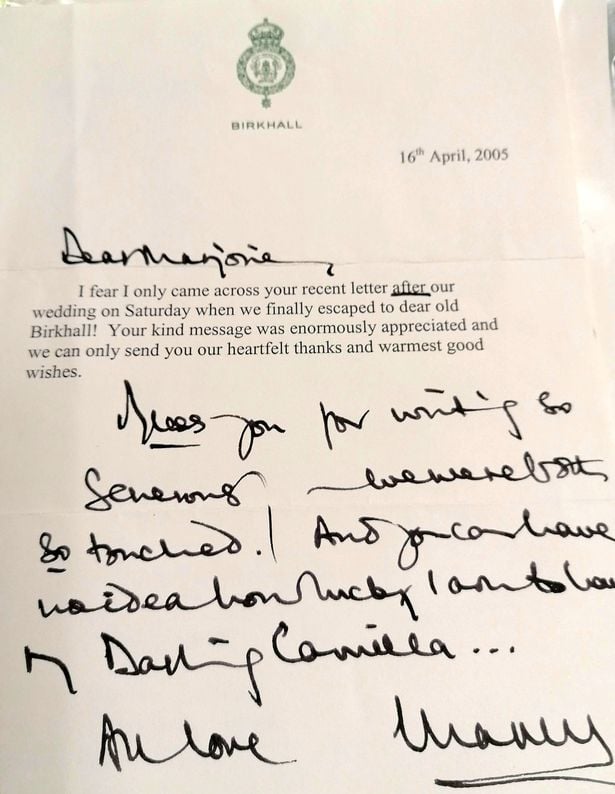 BIRKHALL
16th April, 2005
Dear Marjorie,
I fear I only came across your recent letter after our
wedding on Saturday when we finally escaped to dear old
Birkhall! Your kind message was enormously appreciated and
we can only send you our heartfelt thanks and warmest good
wishes.
Bless you for writing so
generously – we were both
so touched! And you can have
no idea how lucky I am to have
my Darling Camilla ...
All love Charles